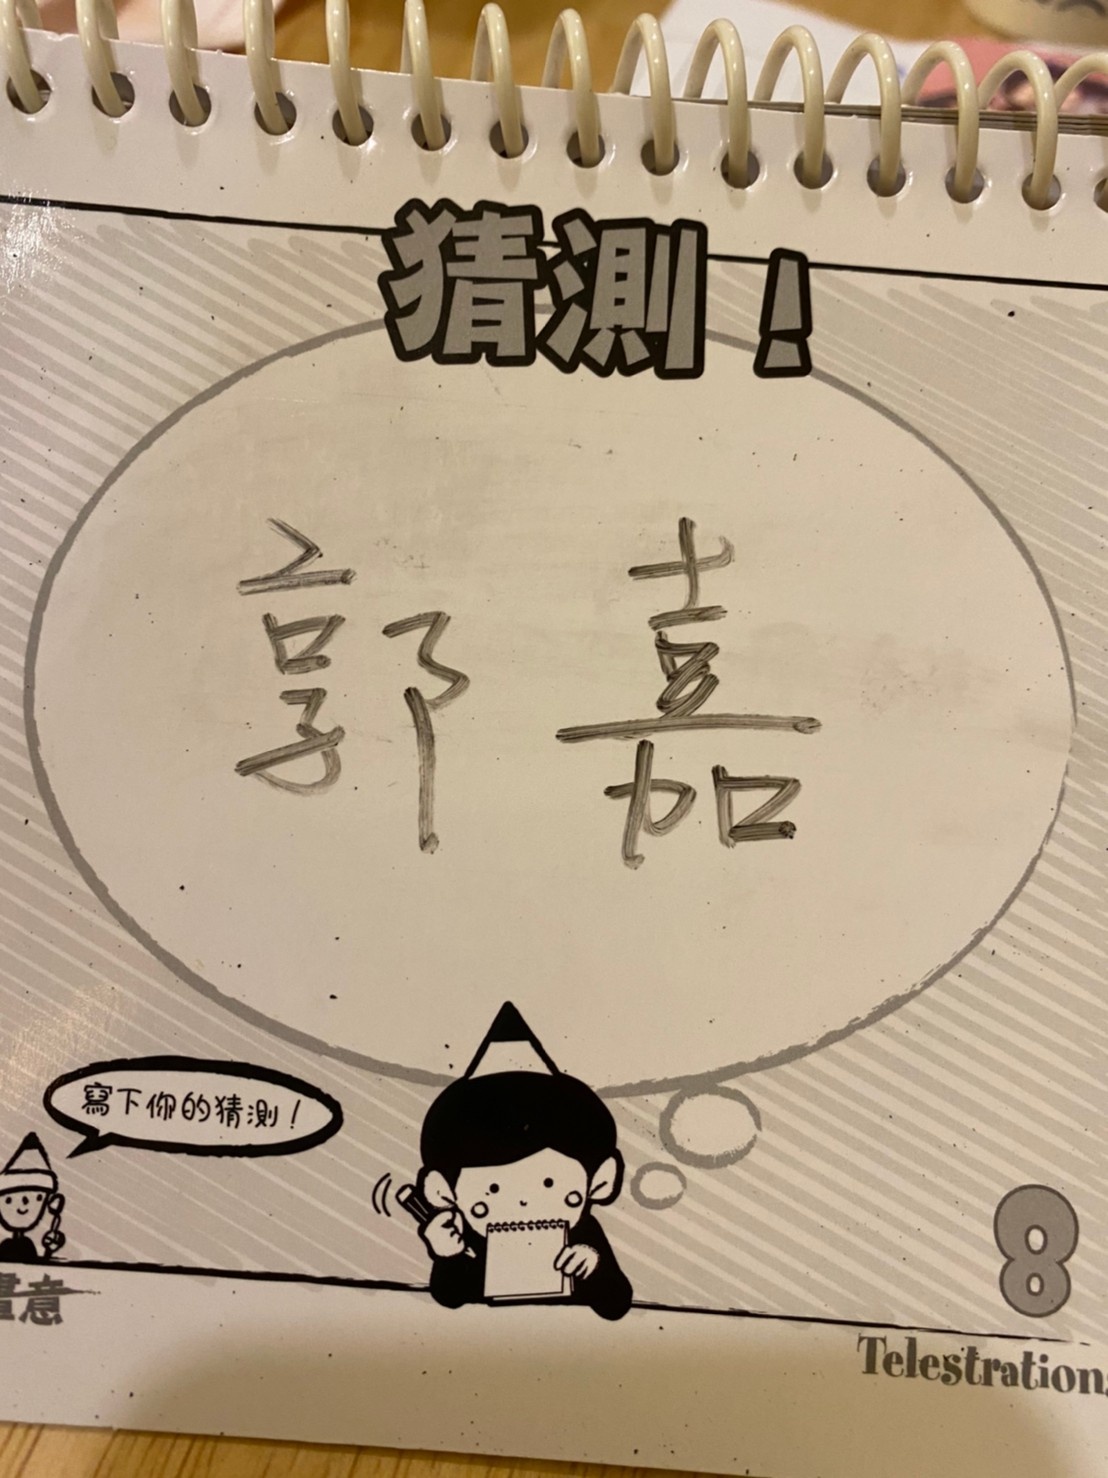 猜測！
郭嘉
寫下你的猜測！
8
畫意
Telestration